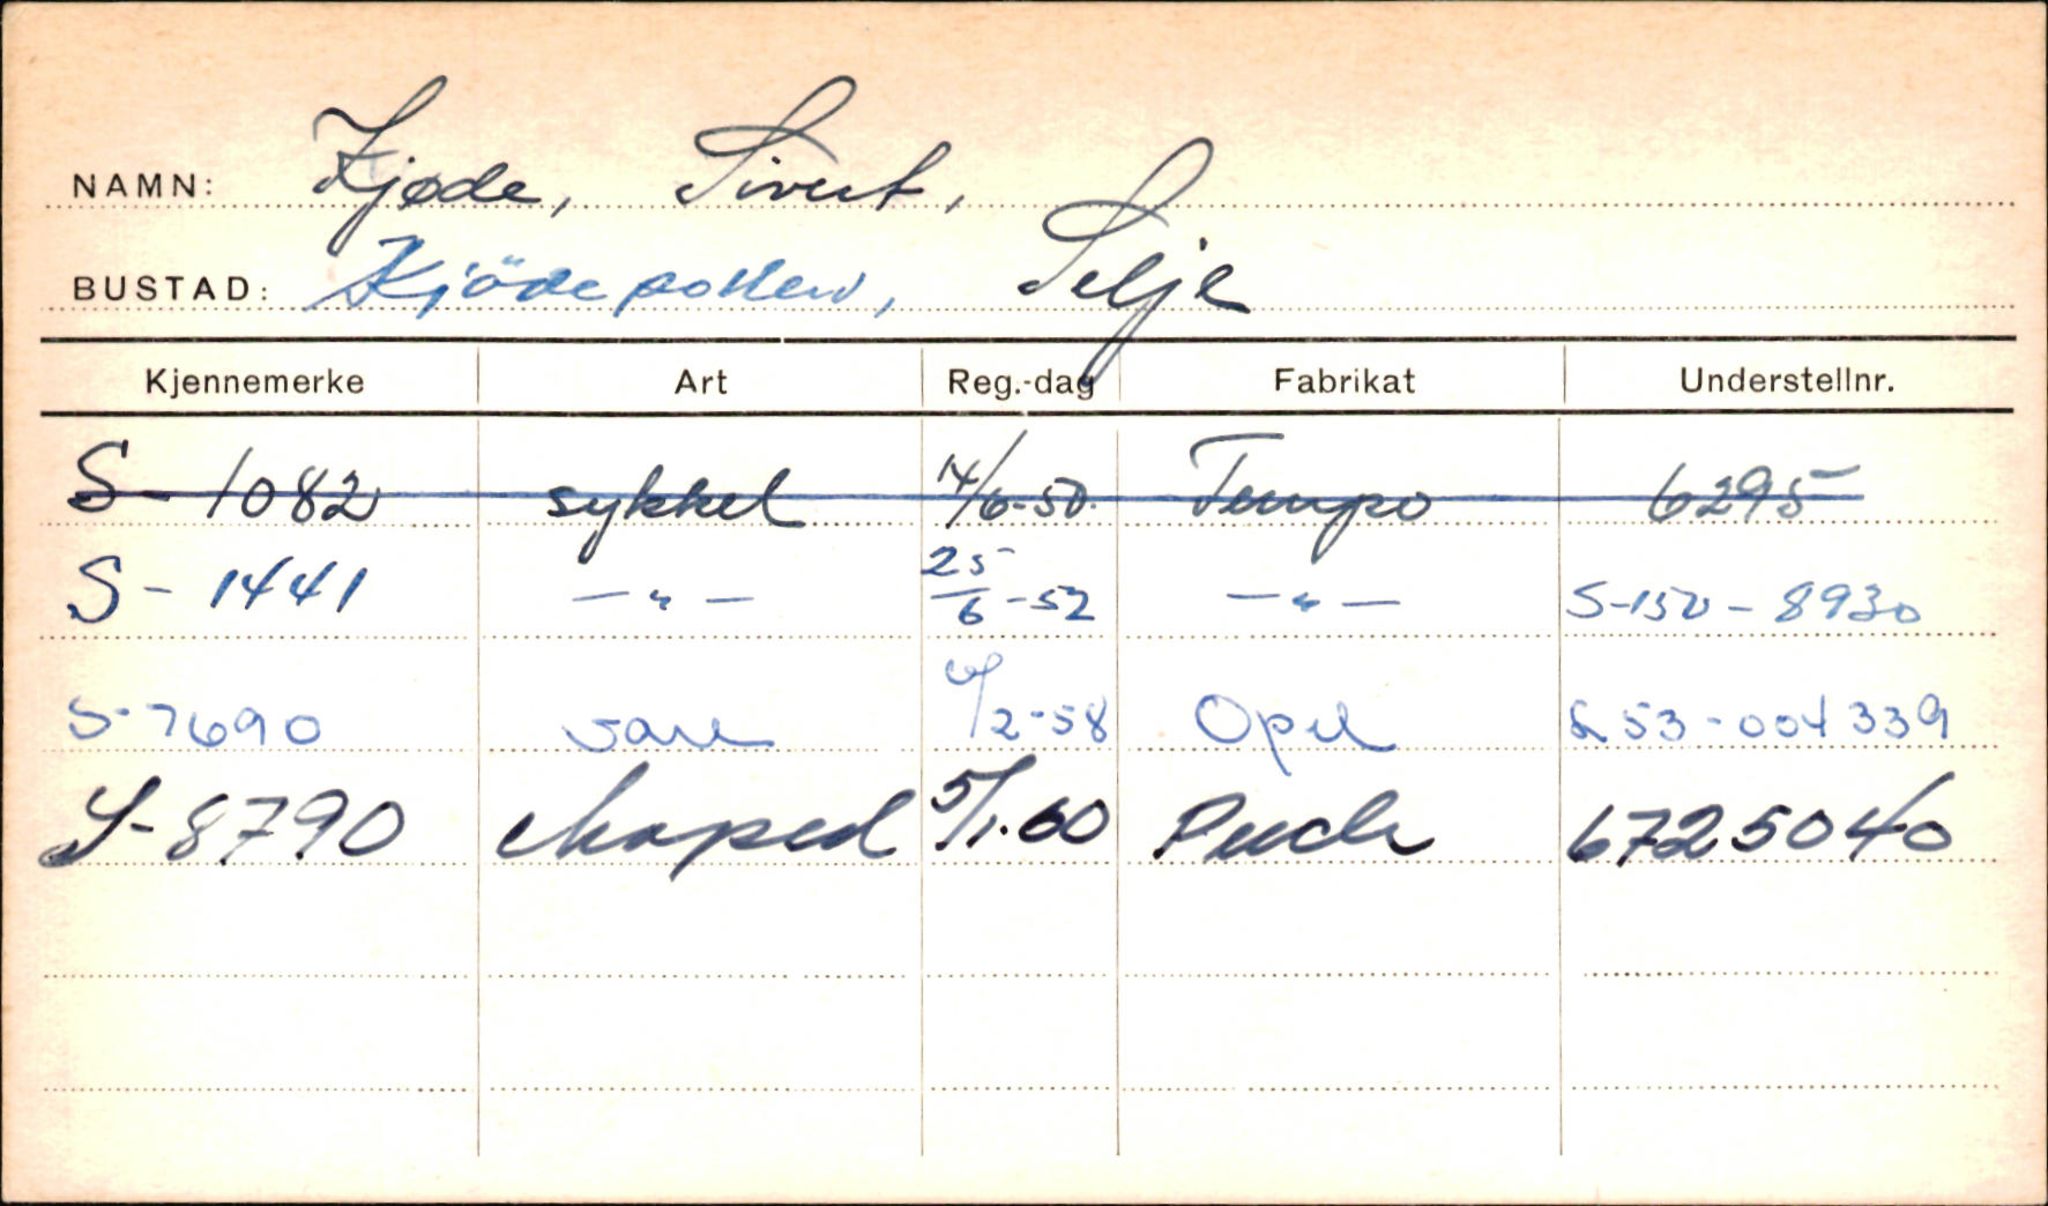 NAMN: Kjøde, Sivert,
BUSTAD: Kjödepollen, Selje
Kjennemerke Art Reg.-dag Fabrikat Understellnr.
S - 1082 sykkel 14/6-50. Tempo 6295
S - 1441 — " — 25/6 -52 — " — S-150 - 8930
S-7690 vare 6/2-58 Opel L53-004339
S-8790 Moped 5/1.60 Puch 6725040